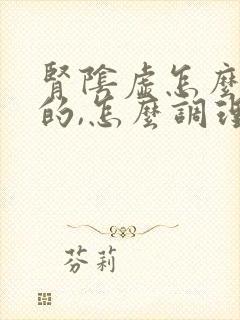 腎陰虛怎麼
的,怎麼調理
芬莉